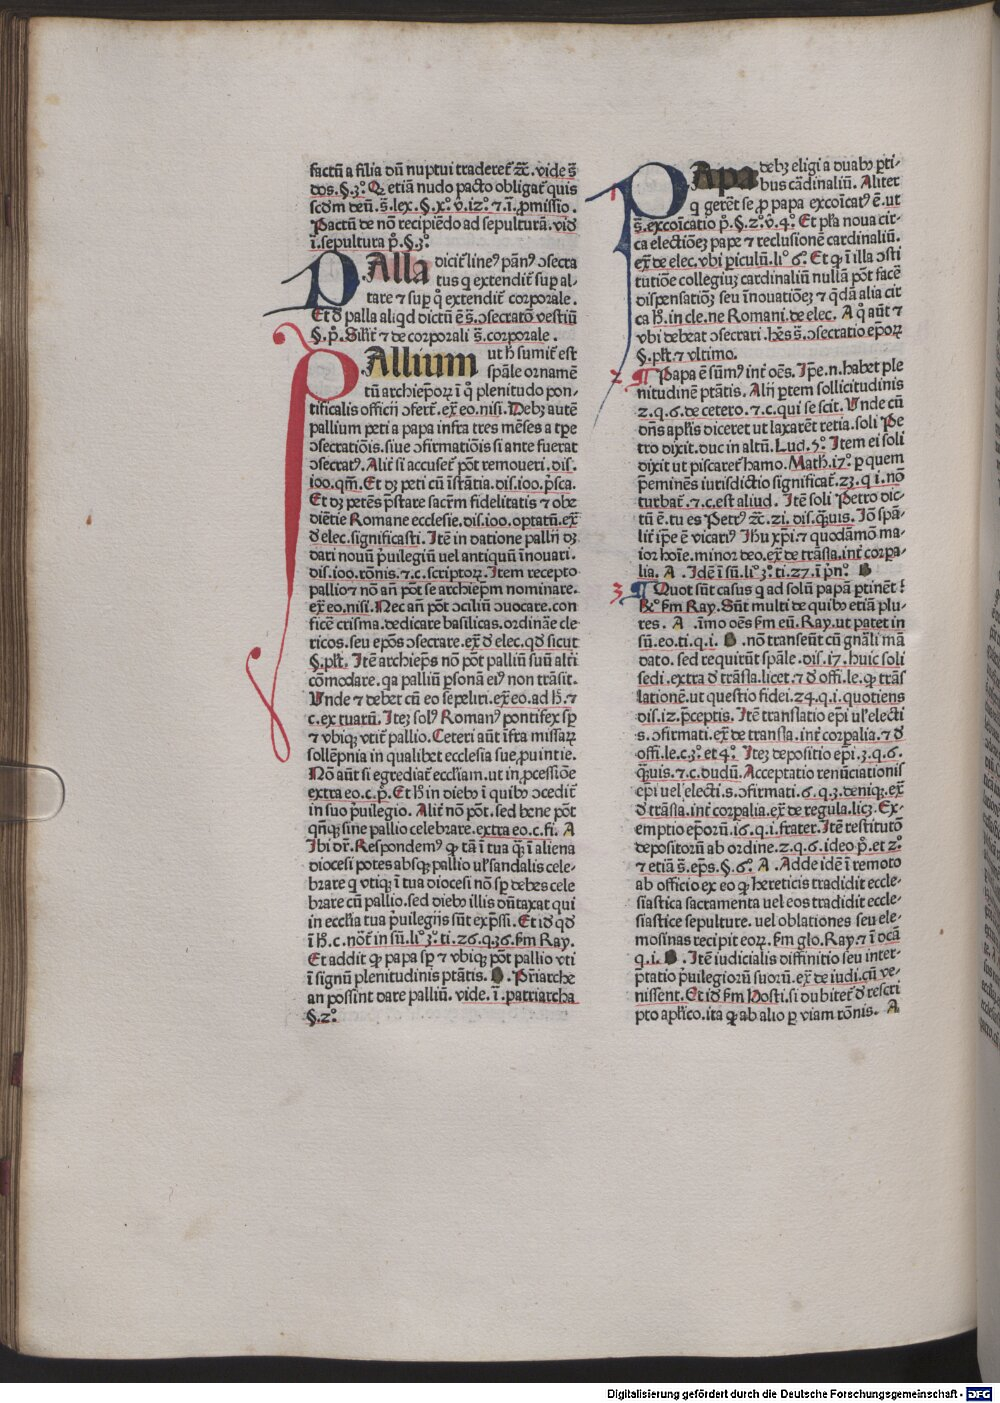 factū a filia dū nuptui traderet᷑ ⁊c̄. vide s̄
dos. §. 3º. Q etiā nudo pacto obligat᷑ quis
scd̄m deū. s̄. lex. §. xº. v̊. i2º. ⁊. i. ꝓmissio.
Pactū de nō recipiēdo ad sepulturā. vid̄
ī. sepultura p̊. §. 3º.
PAlla dicit᷑ lineꝰ pānꝰ ↄsecra
tus q extendit᷑ suꝑ al-
tare ⁊ suꝑ q̊ extendit᷑ corporale.
Et d̄ palla aliqd dictū ē s̄. ↄsecratō vestiū
§. p̊. Silr̄ ⁊ de corporali s̄. corporale.
PAllium ut h̄ sumit᷑ est
sp̄ale ornamē
tū archiep̄oꝝ ī q̊ plenitudo pon-
tificalis officij ↄfert᷑. ex̄ eo. nisi. Debꝫ autē
pallium peti a papa infra tres mēses a tp̄e
ↄsecratiōis. siue ↄfirmatiōis si ante fuerat
ↄsecratꝰ. Alit᷑ si accuset᷑ pōt remoueri. dis.
ioo. qm̄. Et dꝫ peti cū īstātia. dis. ioo. p̄sca.
Et dꝫ petēs p̄stare sacr̄m fidelitatis ⁊ obe
diētie Romane ecclesie. dis. ioo. optatū. ex̄
d̄ elec. significasti. Itē in datione pallij dꝫ
dari nouū p̊uilegiū vel antiquū īnouari.
dis. ioo. rōnis. ⁊. c. scriptoꝝ. Item recepto
pallio ⁊ nō an̄ pōt se archiep̄m nominare.
ex̄ eo. nisi. Nec an̄ pōt ↄciliū ↄuocare. con
ficē crisma. dedicare basilicas. ordināe cle
ricos. seu ep̄os ↄsecrare. ex̄ d̄ elec. qd̄ sicut
§. pl̄t. Itē archiep̄s nō pōt palliū suū alteri
cōmodare. qa palliū ꝑsonā eiꝰ non trāsit.
Unde ⁊ debet cū eo sepeliri. ex̄ eo. ad h̄. ⁊
c. ex tuarū. Iteꝫ solꝰ Romanꝰ pontifex sꝑ
⁊ vbiqꝫ vtit᷑ pallio. Ceteri aūt īfra missaꝝ
sollēpnia in qualibet ecclesia sue ꝓuintie.
Nō aūt si egrediat᷑ eccl̄iam. ut in ꝓcessiōe
extra eo. c. p̊. Et h̄ in diebꝰ ī quibꝰ ↄcedit᷑
in suo p̊uilegio. Alit᷑ nō pōt. sed bene pōt
qn̄qꝫ sine pallio celebrare. extra eo. c. fi. A
Ibi dr̄. Respondemꝰ ꝙ tā ī tua qꝫ̄ ī aliena
diocesi potes absqꝫ pallio ul̄ sandalis cele-
brare q vtiqꝫ ī tua diocesi nō sꝑ debes cele
brare cū pallio. sed diebꝰ illis dūtaxat qui
in eccl̄ia tua p̊uilegijs sūt exp̄ssi. Et id̄ qd̄
ī h̄. c. nōt᷑ in sū. li° 3º. ti. 26. q. 36. fm Ray.
Et addit ꝙ papa sꝑ ⁊ vbiqꝫ pōt pallio vti
ī signū plenitudinis ptātis. B. Pr̄iarche
an possint dare palliū. vide. ī. patriarcha
§. 2º.
1 PApa debꝫ eligi a duabꝰ ꝑti-
bus cādinaliū. Aliter
q gerēt se ꝓ papa excoīcatꝰ ē. ut
s̄. excoīcatio p̊. §. 2º. v̊. 4º. Et pl̄a noua cir-
ca electiōeꝫ pape ⁊ reclusionē cardinaliū.
ex̄ de elec. vbi ꝑiculū. li° 6. Et ꝙ ī illa ↄsti
tutiōe collegiuꝫ cardinaliū nullā pōt facē
dispensatiōeꝫ seu īnouatiōeꝫ ⁊ q̄dā alia cir
ca h̄. in cle. ne Romani. de elec. A q̊ aūt ⁊
vbi debeat ↄsecrari. hēs s̄. ↄsecratio ep̄oꝝ
§. pl̄t. ⁊ vltimo.
2 ¶ Papa ē sūmꝰ int᷑ oēs. Ip̄e. n. habet ple
nitudinē ptātis. Alij ꝑtem sollicitudinis
2. q. 6. de cetero. ⁊. c. qui se scit. Unde cū
dn̄s apl̄is diceret ut laxarēt retia. soli Pe
tro dixit. duc in altū. Luc. 5º. Item ei soli
dixit ut piscaret᷑ hamo. Math. i7º. ꝑ quem
p̄eminēs iurisdictio significat᷑. 23. q. i. nō
turbat᷑. ⁊. c. est aliud. Itē soli Petro dic-
tū ē. tu es Petrꝰ ⁊c̄. 2i. dis. qꝫ̄uis. Iō spā-
lit᷑ ip̄e ē vicariꝰ Ihu xp̄i. ⁊ quodāmō ma-
ior hoīe. minor deo. ex̄ de trās̄la. int᷑ corꝑa-
lia. A. Idē ī sū. li° 3º. ti. 27. ī p̊nº. B
3 ¶ Quot sūt casus q ad solū papā ꝑtinēt?
R̄º. fm Ray. Sūt multi de quibꝰ etiā plu-
res. A. īmo oēs fm eū. Ray. ut patet in
sū. eo. ti. q. i. B. nō transeūt cū gn̄ali mā
dato. sed requirūt sp̄ale. dis. i7. huic soli
sedi. extra d̄ trās̄la. licet. ⁊ d̄ offi. le. ꝙ trās
lationē. ut questio fidei. 24. q. i. quotiens
dis. i2. p̄ceptis. Itē translatio ep̄i ul̄ electi
s. ↄfirmati. ex̄ de transla. int᷑ corꝑalia. ⁊ d̄
offi. le. c. 3º. et 4º. Iteꝫ depositio ep̄i. 3. q. 6.
qꝫ̄uis. ⁊. c. dudū. Acceptatio renūciationis
ep̄i uel electi. s. ↄfirmati. 6. q. 3. deniqꝫ. ex̄
d̄ trās̄la. int᷑ corꝑalia. ex̄ de regula. licꝫ. Ex-
emptio ep̄orū. i6. q. i. frater. Itē restitutō
depositorū ab ordine. 2. q. 6. ideo p̊. et 2º.
⁊ etiā s̄. ep̄s. §. 6º. A. Adde idē ī remoto
ab officio ex eo ꝙ hereticis tradidit eccle-
siastica sacramenta uel eos tradidit eccle-
siastice sepulture. uel oblationes seu ele-
mosinas recipit eoꝝ. fm glo. Ray. ⁊ ī dcā
q. i. B. Itē iudicialis diffinitio seu inter-
p̄tatio p̊uilegiorū suorū. ex̄ de iudi. cū ve-
nissent. Et id̄ fm Hosti. si dubitet᷑ d̄ rescri
pto apl̄ico. ita ꝙ ab alio ꝑ viam rōnis. A
Digitalisierung gefördert durch die Deutsche Forschungsgemeinschaft - DFG